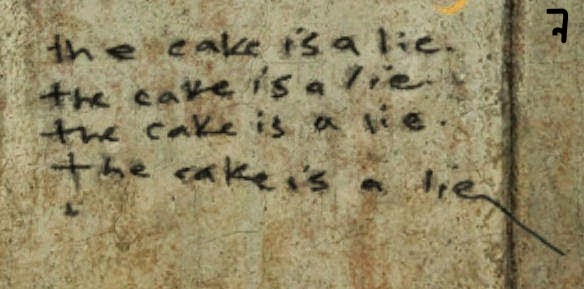 the cake is a lie.
the cake is a lie.
the cake is a lie.
the cake is a lie